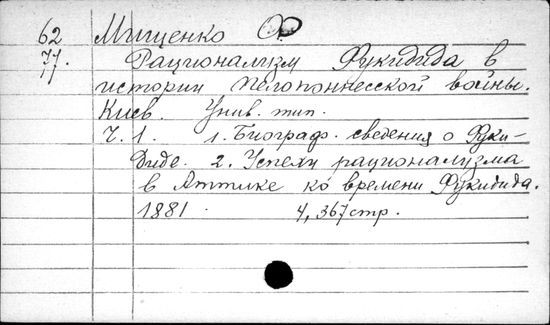 62 Мищенко Ф.
77. Рационализм Фукидида в
11 истории Пелопоннесской войны.
Киев. Унив. тип.
Ч. 1. 1. Биограф. сведения о Фуки-
диде. 2. Успехи рационализма
в Аттике ко времени Фукидида.
1881. 4, 367 стр.